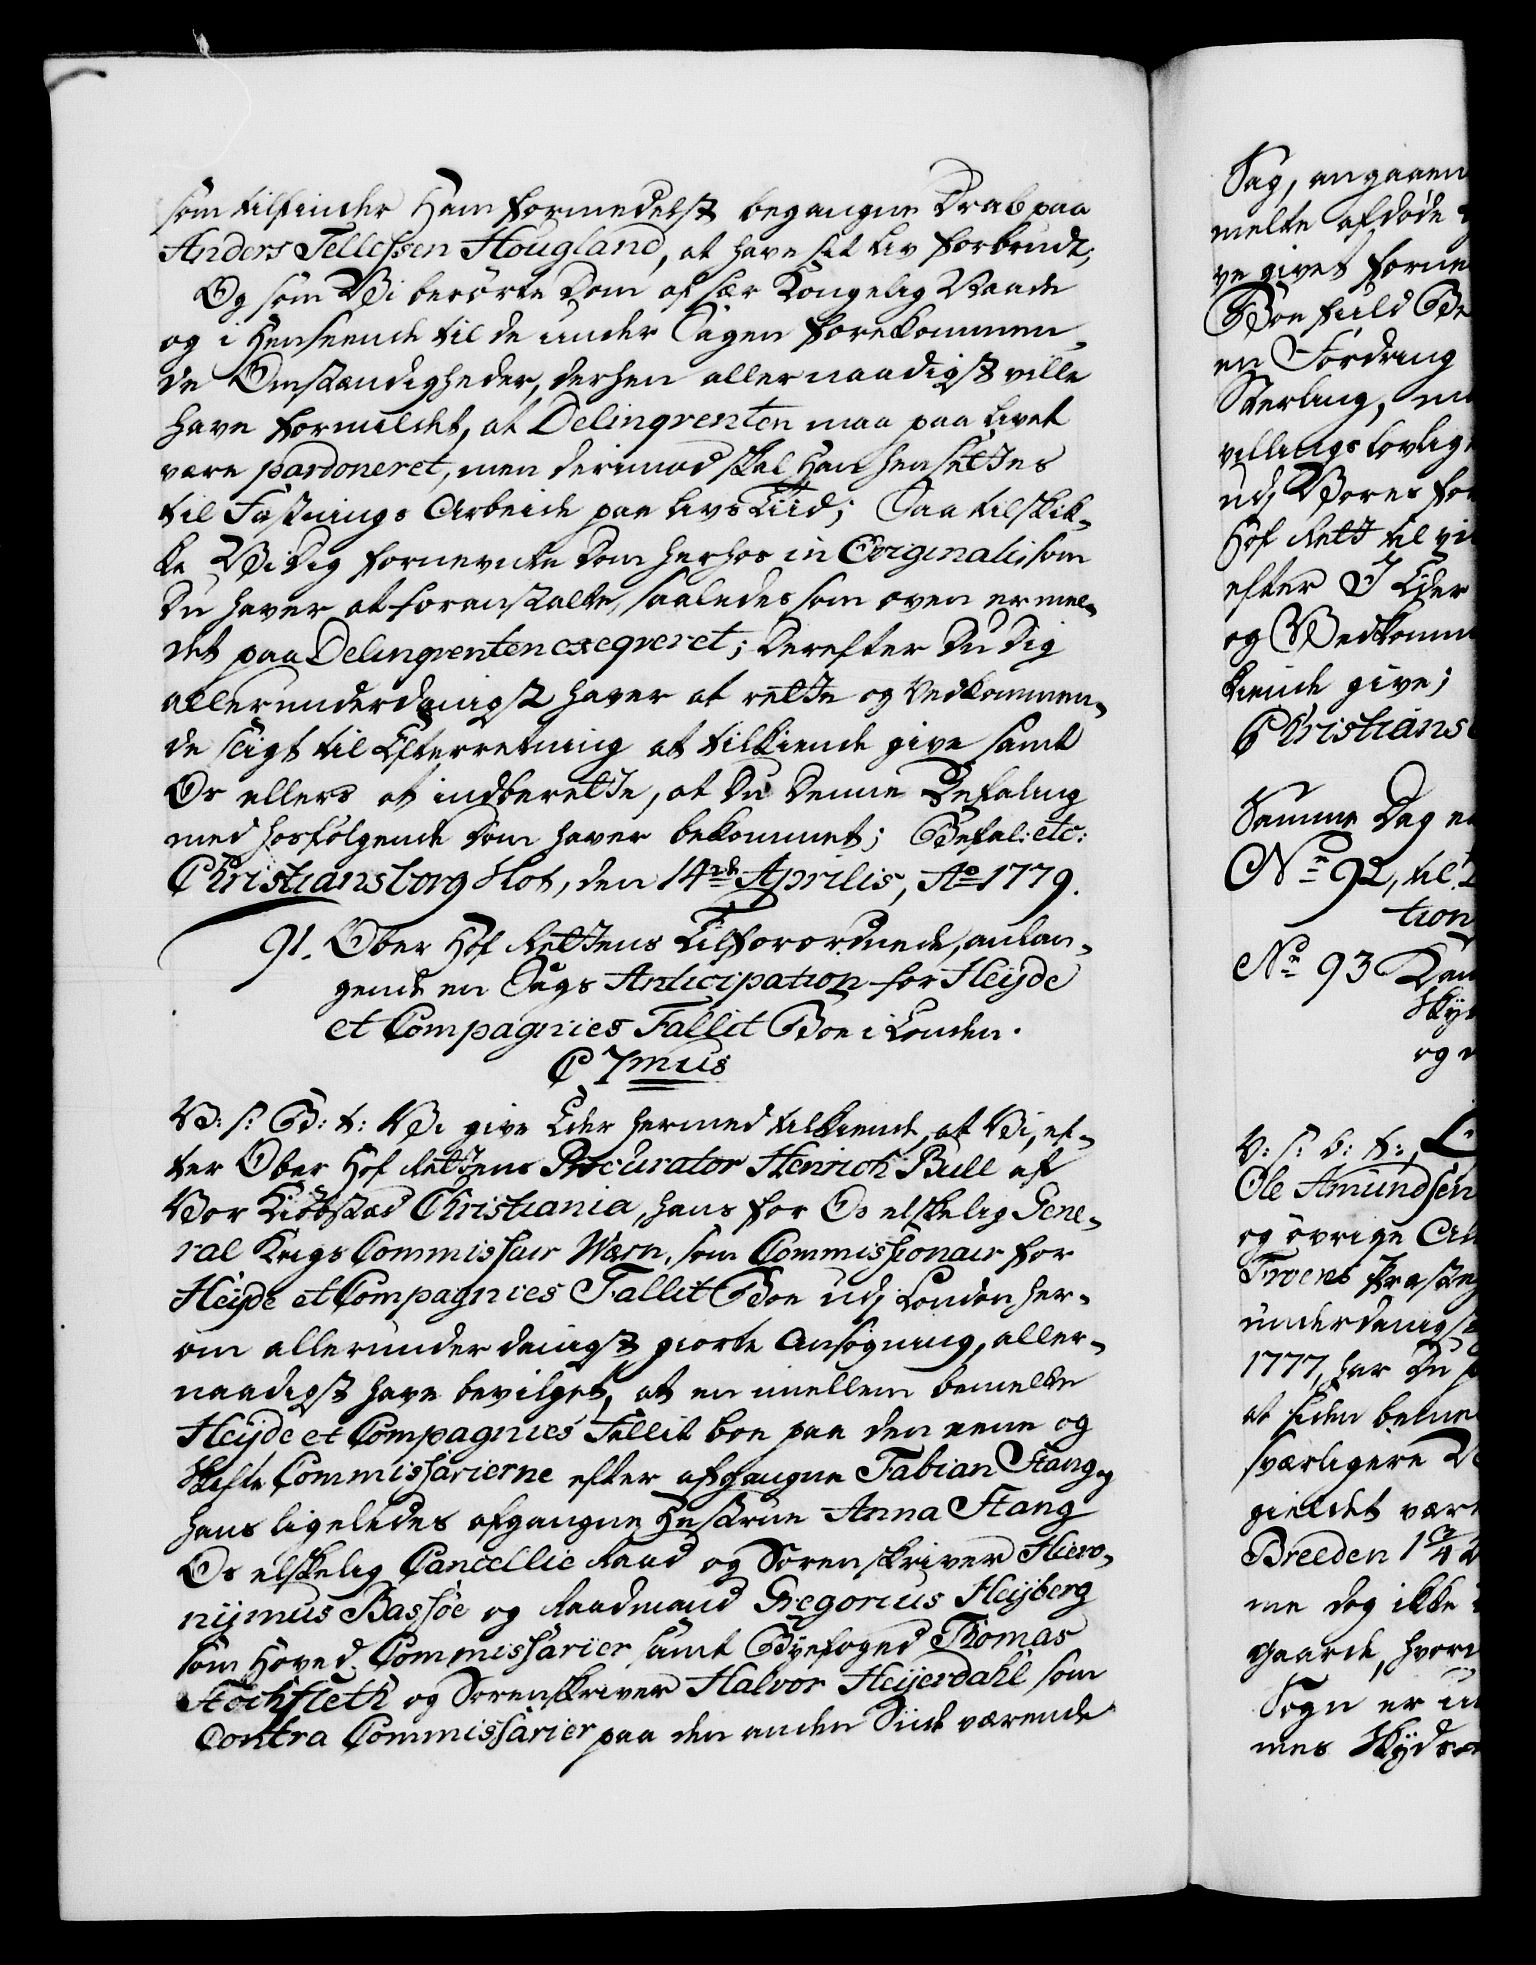 som tilfinder Ham formedelst begangne Drab paa
Anders Tellefssen Hougland, at have sit Liv forbrudt;
Og som Vi berørte Dom af sær Kongelig Naade
og i Henseende til de under Sagen forekommen-
de Omstændigheder, derhen allernaadigst ville
have formildet, at Delinqventen maa paa Livet
være pardoneret, men derimod skal han hensettes
til Fæstnings Arbeide paa Livs Tiid; Saa tilskik-
ke Vi Dig fornevnte Dom herhos in Originali, som
Du haver at foranstalte, saaledes som oven er mel-
det paa Delinqventen exeqveret; Derefter Du Dig
allerunderdanigst haver at rette og Vedkommen-
de sligt til Efterretning at tilkiende give samt
Os ellers at indberette, at Du denne Befaling
med hosfølgende Dom haver bekommet; Befal: etc:
Christiansborg Slot, den 14de Aprilis, Ao 1779.
91. Ober Hof Rettens Tilforordnede, anlan-
gende en Sags Anticipation for Heyde
et Compagnies Fallit Boe i London.
C 7mus
V: s: G: t: Vi give Eder hermed tilkiende, at Vi, ef-
ter Ober Hof Rettens Procurator Henrich Bull af
Vor Kiøbstad Christiania, hans for Os elskelig Gene-
ral Krigs Commissair Wærn, som Commissionair for
Heyde et Compagnies Fallit Boe udj London her-
om allerunderdanigst giorte Ansøgning, aller-
naadigst have bevilget, at en imellem bemelte
Heyde et Compagnies Fallit boe paa den eene og
Skifte Commissarierne efter afgangne Fabian Stang og
hans ligeledes afgangne Hustrue Anna Stang
Os elskelig Cancellie Raad og Sorenskriver Hiero-
nymus Bassøe og Raadmand Gregorius Heyberg
som Hoved Commissarier samt Byefoged Thomas
Stochfleth og Sorenskriver Halvor Heyerdahl som
Contra Commissarier paa den anden Side værende
Sag, angaaen
melte afdøde
ve givet forne
Boe fuld Be
en Fordring
Sterling, m
villings lovlig
udj Vores for
Hof Rett til
efter I Eder
og Vedkomm
kiende give;
Christians
Samme Dag
No 92, til
tion
No 93 Kam
Skyd
og
V: s: G: t:,
Ole Amundsen
og øvrige Al
Froens Præste
underdanigst
1777, har Du
at siden beme
sværligere
gieldet være
Breeden 1 3/4
me dog ikke
gaarde, hvor
Sogn er
mes Skyds